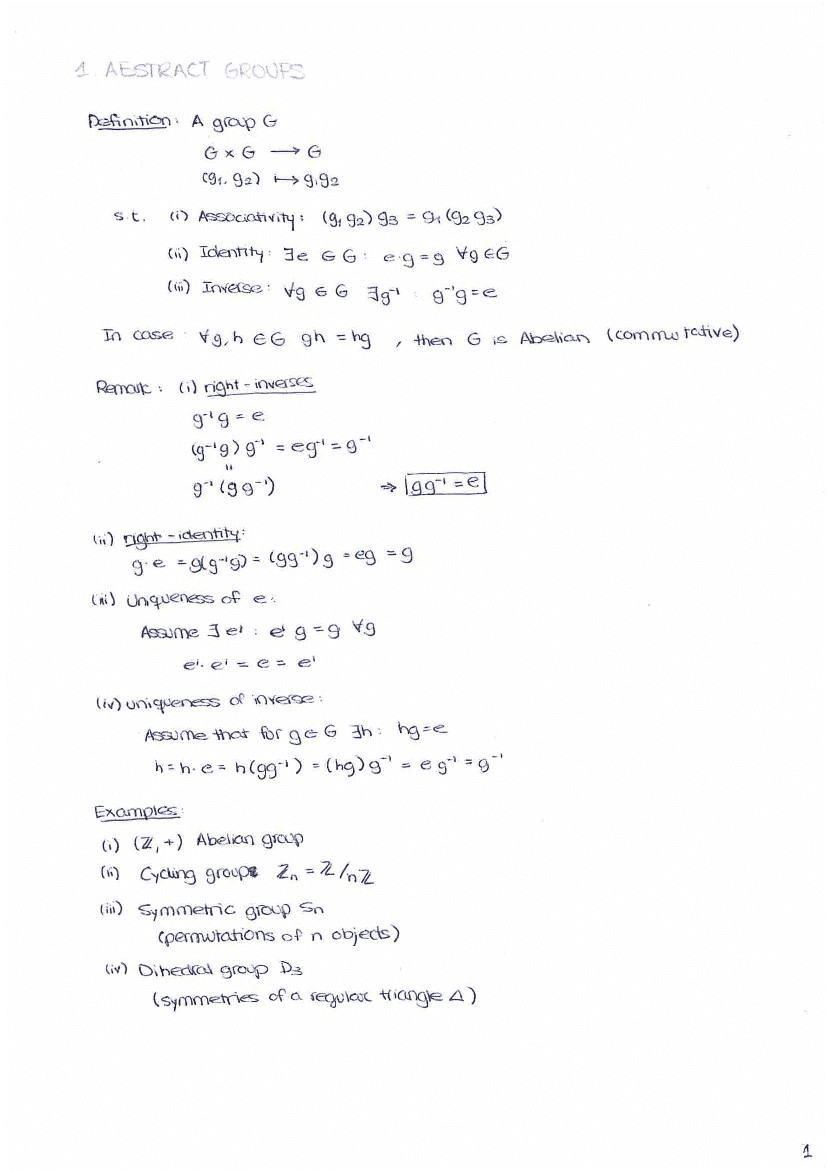 1. ABSTRACT GROUPS
Definition: A group G
G × G ⟶ G
(g₁, g₂) ⟼ g₁g₂
s.t. (i) Associativity: (g₁ g₂) g₃ = g₁ (g₂ g₃)
(ii) Identity: ∃e ∈ G: e·g = g ∀g ∈ G
(iii) Inverse: ∀g ∈ G ∃g⁻¹ : g⁻¹g = e
In case: ∀g, h ∈ G gh = hg , then G is Abelian (commutative)
Remark: (i) right-inverses
g⁻¹g = e
(g⁻¹g) g⁻¹ = eg⁻¹ = g⁻¹
"
g⁻¹ (g g⁻¹) ⇒ gg⁻¹ = e
(ii) right-identity:
g·e = g(g⁻¹g) = (gg⁻¹) g = eg = g
(iii) Uniqueness of e:
Assume ∃ e' : e' g = g ∀g
e'· e' = e = e'
(iv) uniqueness of inverse:
Assume that for g ∈ G ∃h: hg = e
h = h·e = h(gg⁻¹) = (hg) g⁻¹ = e g⁻¹ = g⁻¹
Examples:
(i) (ℤ, +) Abelian group
(ii) Cycling groups ℤₙ = ℤ/nℤ
(iii) Symmetric group Sₙ
(permutations of n objects)
(iv) Dihedral group D₃
(symmetries of a regular triangle Δ)
1